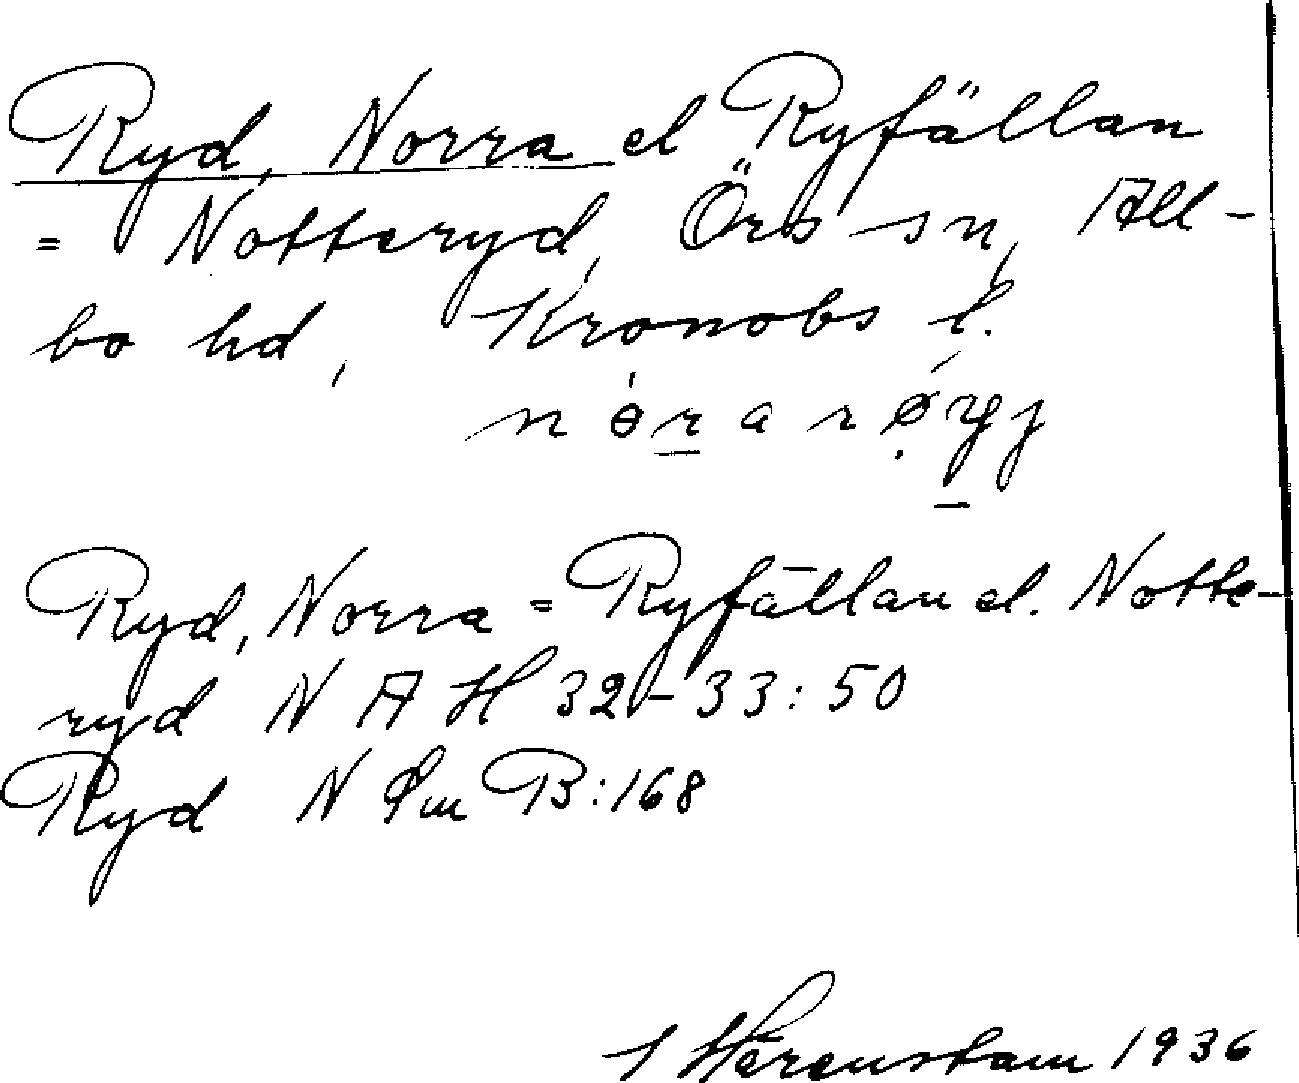 Ryd, Norra el Ryfällan
= Notteryd, Örs sn, All-
bo hd, Kronobs l.
Ryd, Norra = Ryfällan el. Notte-
ryd N A H 32-33:50
Ryd N Sm B:168
1936